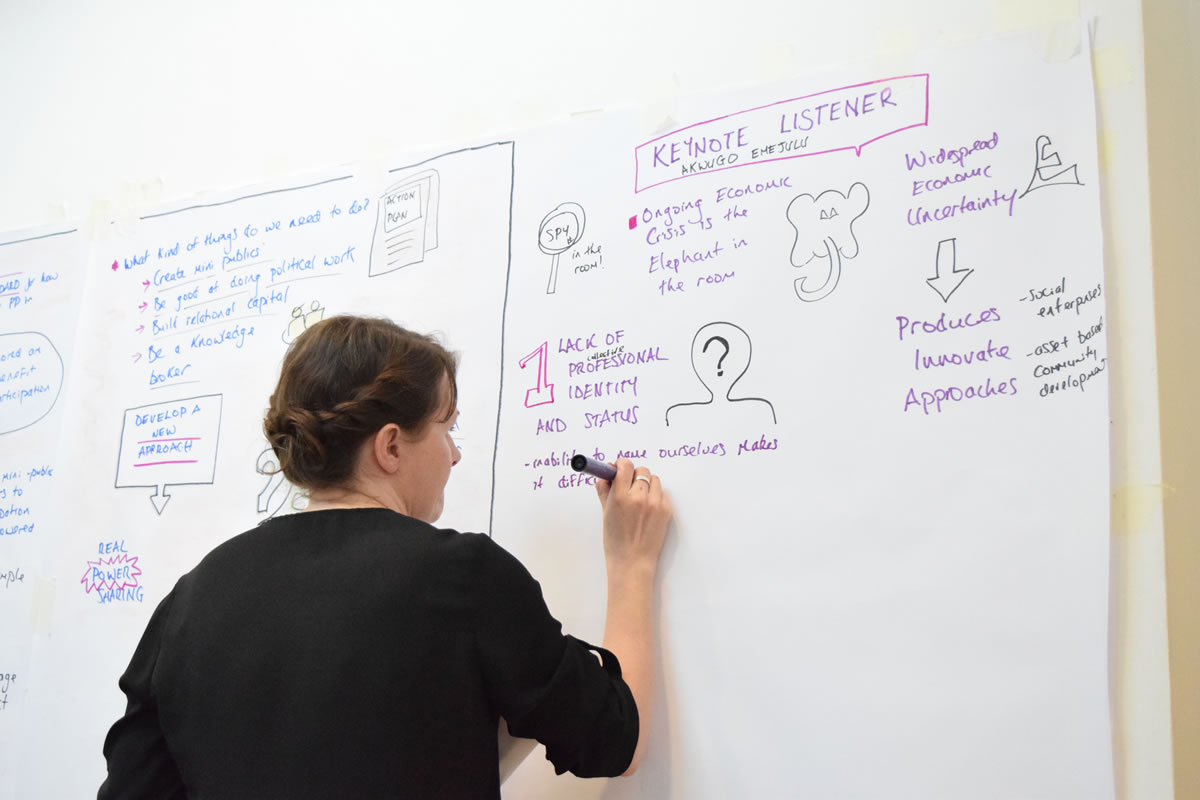 how
PP
on
benefit
participation
mini-public
to
What kind of things do we need to do?
→ Create mini publics
→ Be good at doing political work
→ Build relational capital
→ Be a knowledge
broker
ACTION
PLAN
DEVELOP A
NEW
APPROACH
REAL
POWER
SHARING
KEYNOTE LISTENER
AKWUGO EMEJULU
SPY
in the
room!
Ongoing Economic
Crisis is the
Elephant in
the room
Widespread
Economic
Uncertainty
Produces
Innovate
Approaches
- Social
enterprises
- asset based
community
development
1 LACK OF
collective
PROFESSIONAL
IDENTITY
AND STATUS
?
- inability to name ourselves makes
it